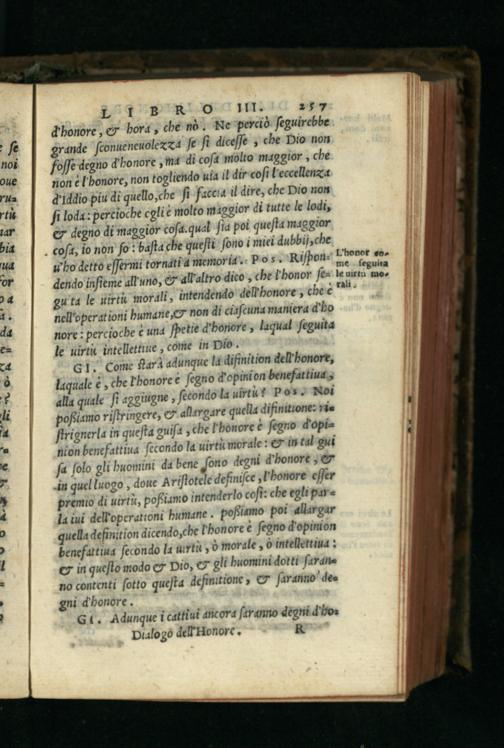 LIBRO III. 257
d'honore, & hora, che nò. Ne perciò seguirebbe
grande sconueneuolezza se si dicesse, che Dio non
fosse degno d'honore, ma di cosa molto maggior, che
non è l'honore, non togliendo uia il dir così l'eccellenza
d'Iddio piu di quello, che si faccia il dire, che Dio non
si loda: percioche egli è molto maggior di tutte le lodi,
& degno di maggior cosa. qual sia poi questa maggior
cosa, io non so: basta che questi sono i miei dubbij, che
u'ho detto essermi tornati a memoria. Pos. Rispon-
dendo insieme all'uno, & all'altro dico, che l'honor se-
guita le uirtù morali, intendendo dell'honore, che è
nell'operationi humane, & non di ciascuna maniera d'ho
nore: percioche è una spetie d'honore, laqual seguita
le uirtù intellettiue, come in Dio.
GI. Come starà adunque la difinition dell'honore,
laquale è, che l'honore è segno d'opinion benefattiua,
alla quale si aggiugne, secondo la uirtù? Pos. Noi
possiamo ristringere, & allargare quella difinitione: ri-
strignerla in questa guisa, che l'honore è segno d'opi-
nion benefattiua secondo la uirtù morale: & in tal gui
sa solo gli huomini da bene sono degni d'honore, &
in quel luogo, doue Aristotele definisce, l'honore esser
premio di uirtù, possiamo intenderlo così: che egli par-
la iui dell'operationi humane. possiamo poi allargar
quella definition dicendo, che l'honore è segno d'opinion
benefattiua secondo la uirtù, ò morale, ò intellettiua:
& in questo modo & Dio, & gli huomini dotti saran-
no contenti sotto questa definitione, & saranno de-
gni d'honore.
GI. Adunque i cattiui ancora saranno degni d'ho-
Dialogo dell'Honore. R
L'honor co-
me seguita
le uirtù mo-
rali.